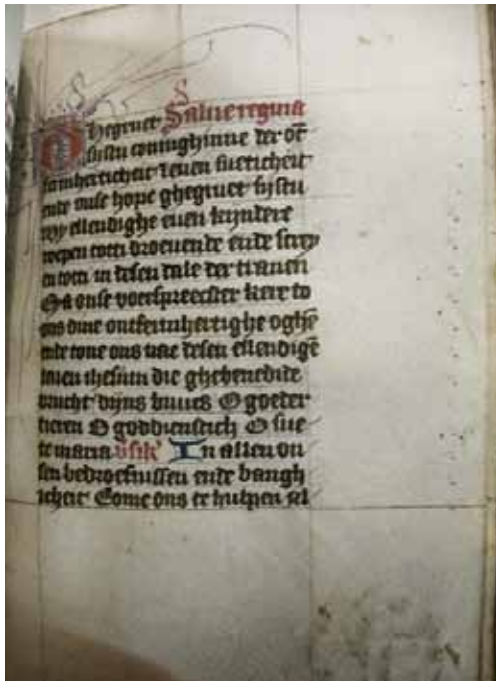 Ghegruet Salue regina
sijstu coninghinne der ōt
fermherticheit leuen sueticheit
ende onse hope ghegruet sijstu
wy ellendighe euen kijndere
roepen toti droeuende ende screy
en toti in desen dale der tranen
O a onse voerspreecster keer to
ons dine ontfermhertighe oghē
ende tone ons nae desen ellendigē
leuen ihesum die ghebenedide
vrucht dijns buucs O goeder
tieren O goddienstich O sue
te maria In allen on
sen bedroefnissen ende bangh
icheit Come ons te hulpen